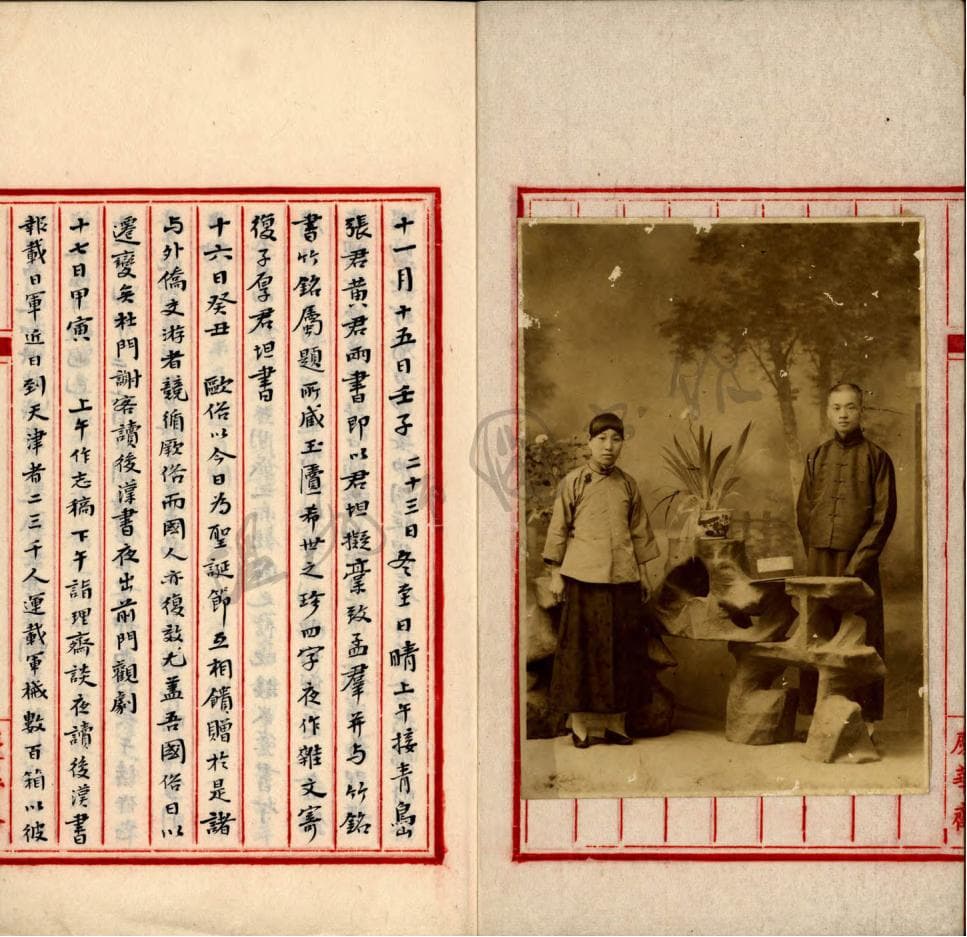 十一月十五日壬子 二十三日冬至日晴上午接青島
張君黃君兩書即以君坦擬藁致孟羣并与竹銘
書竹銘屬題所藏玉匵希世之珍四字夜作雜文寄
復子厚君坦書
十六日癸丑 歐俗以今日為聖誕節互相饋贈於是諸
与外僑交游者競循厥俗而國人亦復效尤蓋吾國俗日以
遷變矣杜門謝客讀後漢書夜出前門觀劇
十七日甲寅 上午作志稿下午詣理齋談夜讀後漢書
報載日軍近日到天津者二三千人運載軍械數百箱以彼